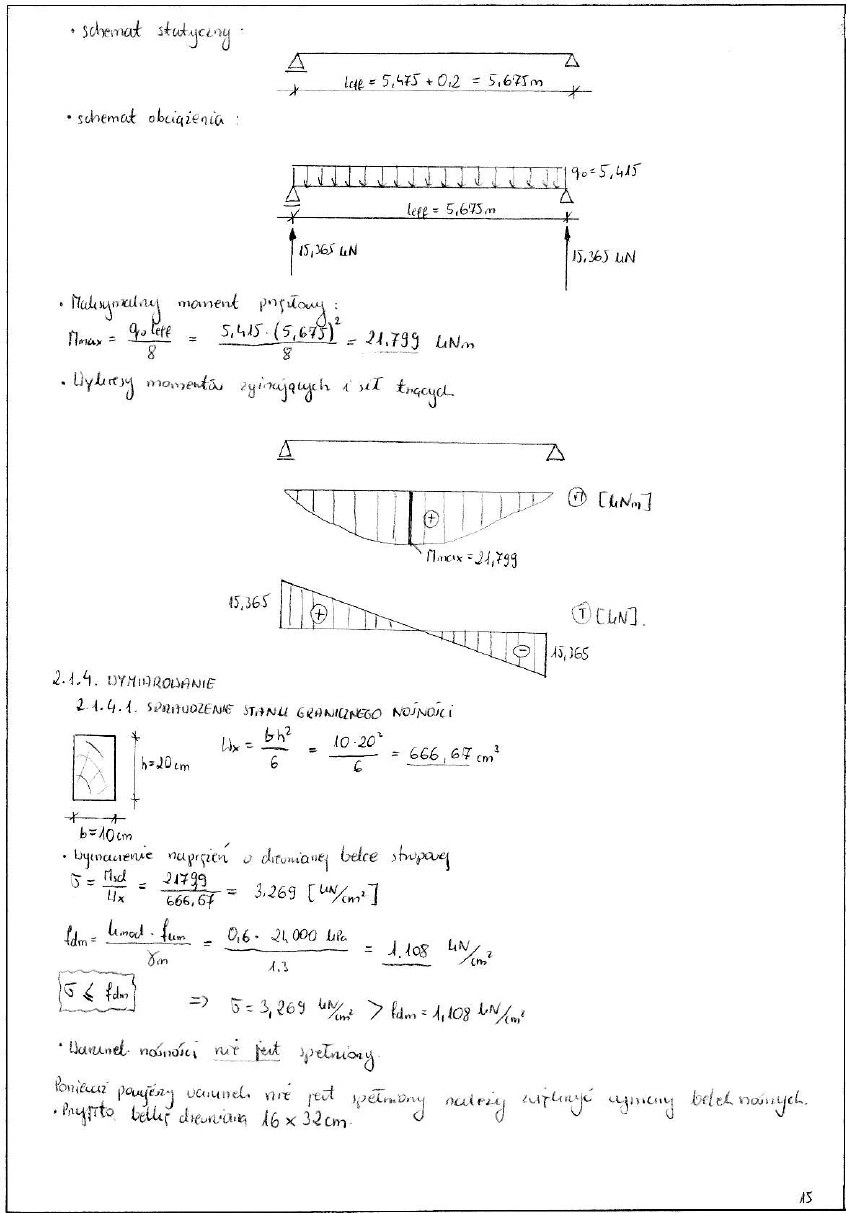 • schemat statyczny :
leff = 5,475 + 0,2 = 5,675m
• schemat obciążenia :
qo = 5,415
leff = 5,675m
15,365 kN
15,365 kN
• Maksymalny moment przęsłowy :
Mmax = qo leff / 8 = 5,415 · (5,675)² / 8 = 21.799 kNm
• Wykresy momentów zginających i sił tnących
M [kNm]
+
Mmax = 21,799
15,365
+
T [kN].
−
15,365
2.1.4. WYMIAROWANIE
2.1.4.1. SPRAWDZENIE STANU GRANICZNEGO NOŚNOŚCI
Wx = bh² / 6 = 10·20² / 6 = 666,67 cm³
h=20cm
b=10cm
• Wyznaczenie naprężeń w drewnianej belce stropowej
σ = Msd / Wx = 21799 / 666,67 = 3,269 [kN/cm²]
fdm = kmod · fkm / γm = 0,6 · 24,000 kPa / 1.3 = 1.108 kN/cm²
σ ≤ fdm => σ = 3,269 kN/cm² > fdm = 1,108 kN/cm²
• Warunek nośności nie jest spełniony.
Ponieważ powyższy warunek nie jest spełniony należy zwiększyć wymiary belek nośnych.
• Przyjęto belkę drewnianą 16 x 32cm.
15